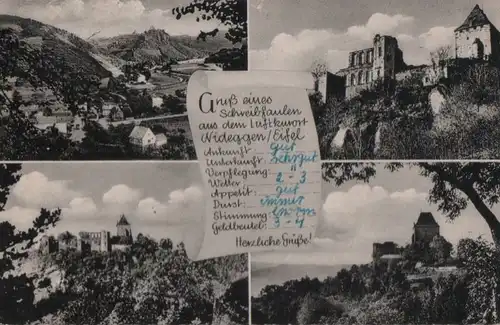 Gruß eines
Schreibfaulen
aus dem Luftkurort
Nideggen/Eifel
Ankunft: gut
Unterkunft: Sehr gut
Verpflegung: "
Wetter: 2-3
Appetit: gut
Durst: immer
Stimmung:
Geldbeutel: 3-4
Herzliche Grüße!